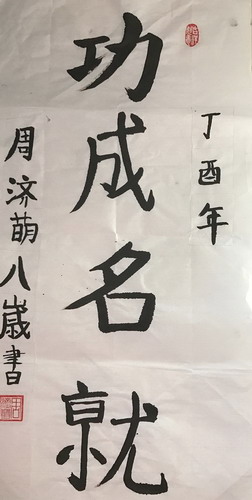 丁酉年
功成名就
周济萌八歲書